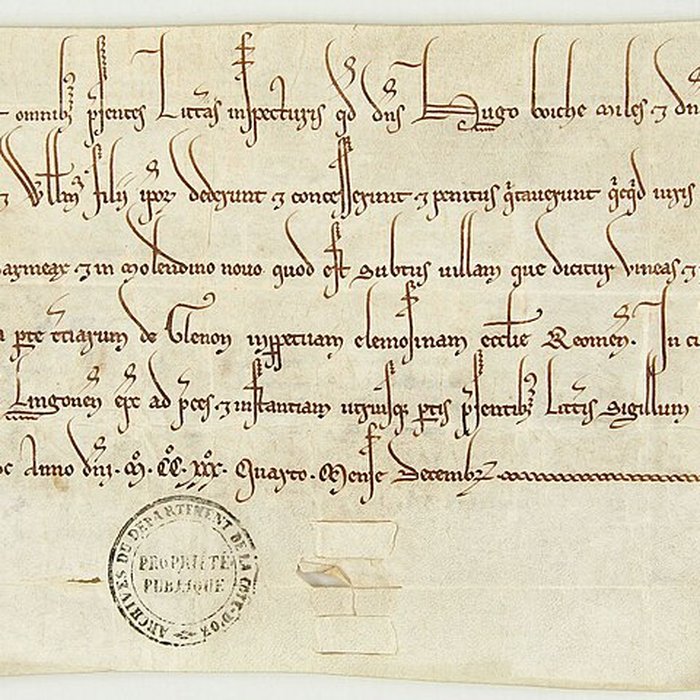 omnibȝ p̄sentes litt̄as inspecturis qd dn̄s Hugo boiche miles ⁊ dn
⁊ Will̄m filii ipoꝝ dederunt ⁊ concesserunt ⁊ penitus q̄taverunt q̄cq̄d iuris
⁊ in molendino novo quod est subtus uillam que dicitur vineas ⁊
pte t̄ciarum de Glenon inppetuam elemosinam eccl̄ie Reomen̄. In cu
Lingonen̄ ep̄c ad p̄ces ⁊ instantiam utriusq pt̄is p̄sentibȝ litt̄is sigillum
Anno dn̄i. mͦ. ccͦ. xxxͦ. quarto. mense decembr̄
ARCHIVES DU DEPARTEMENT DE LA COTE-D'OR
PROPRIÉTÉ
PUBLIQUE